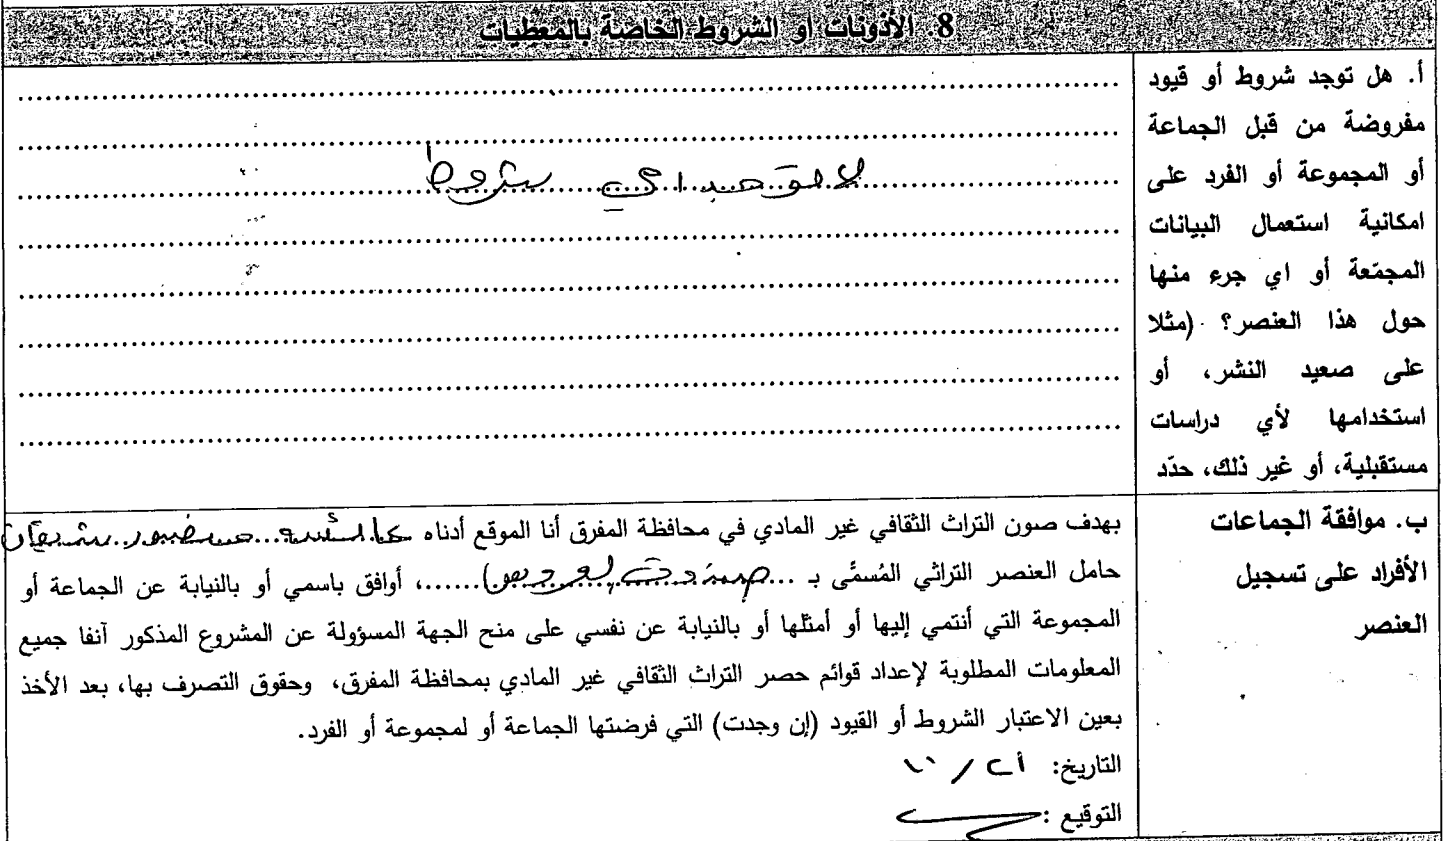 8. الأذونات أو الشروط الخاصة بالمعطيات
أ. هل توجد شروط أو قيود
مفروضة من قبل الجماعة
أو المجموعة أو الفرد على
امكانية استعمال البيانات
المجمّعة أو اي جرء منها
حول هذا العنصر؟ (مثلا
على صعيد النشر، أو
استخدامها لأي دراسات
مستقبلية، أو غير ذلك، حدّد
لا يوجد اي شروط
ب. موافقة الجماعات
الأفراد على تسجيل
العنصر
بهدف صون التراث الثقافي غير المادي في محافظة المفرق أنا الموقع أدناه
حامل العنصر التراثي المُسمَّى بـ ...... صندوق العروس ......، أوافق باسمي أو بالنيابة عن الجماعة أو
المجموعة التي أنتمي إليها أو أمثلها أو بالنيابة عن نفسي على منح الجهة المسؤولة عن المشروع المذكور آنفا جميع
المعلومات المطلوبة لإعداد قوائم حصر التراث الثقافي غير المادي بمحافظة المفرق، وحقوق التصرف بها، بعد الأخذ
بعين الاعتبار الشروط أو القيود (إن وجدت) التي فرضتها الجماعة أو لمجموعة أو الفرد.
التاريخ:
التوقيع :